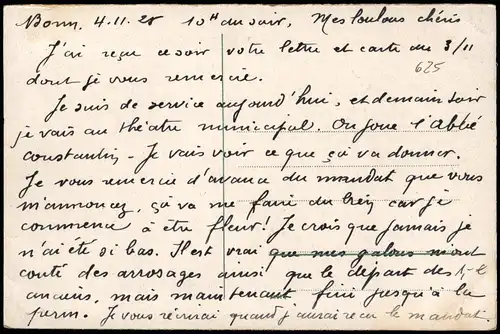 Bonn, 4.11.28 10H du soir, Mes loulous chéris
J'ai reçu ce soir votre lettre et carte du 3/11
dont je vous remercie.
625
Je suis de service aujourd'hui, et demain soir
je vais au théatre municipal. On joue l'Abbé
constantin - Je vais voir ce que ça va donner.
Je vous remercie d'avance du mandat que vous
m'annoncez, ça va me faire du bien car je
commence à être fleur! Je crois que jamais je
n'ai été si bas. Il est vrai que mes galons m'ont
conté des arrosages ainsi que le départ des
anciens, mais maintenant fini jusqu'à la
perm. Je vous écrirai quand j'aurai reçu le mandat.